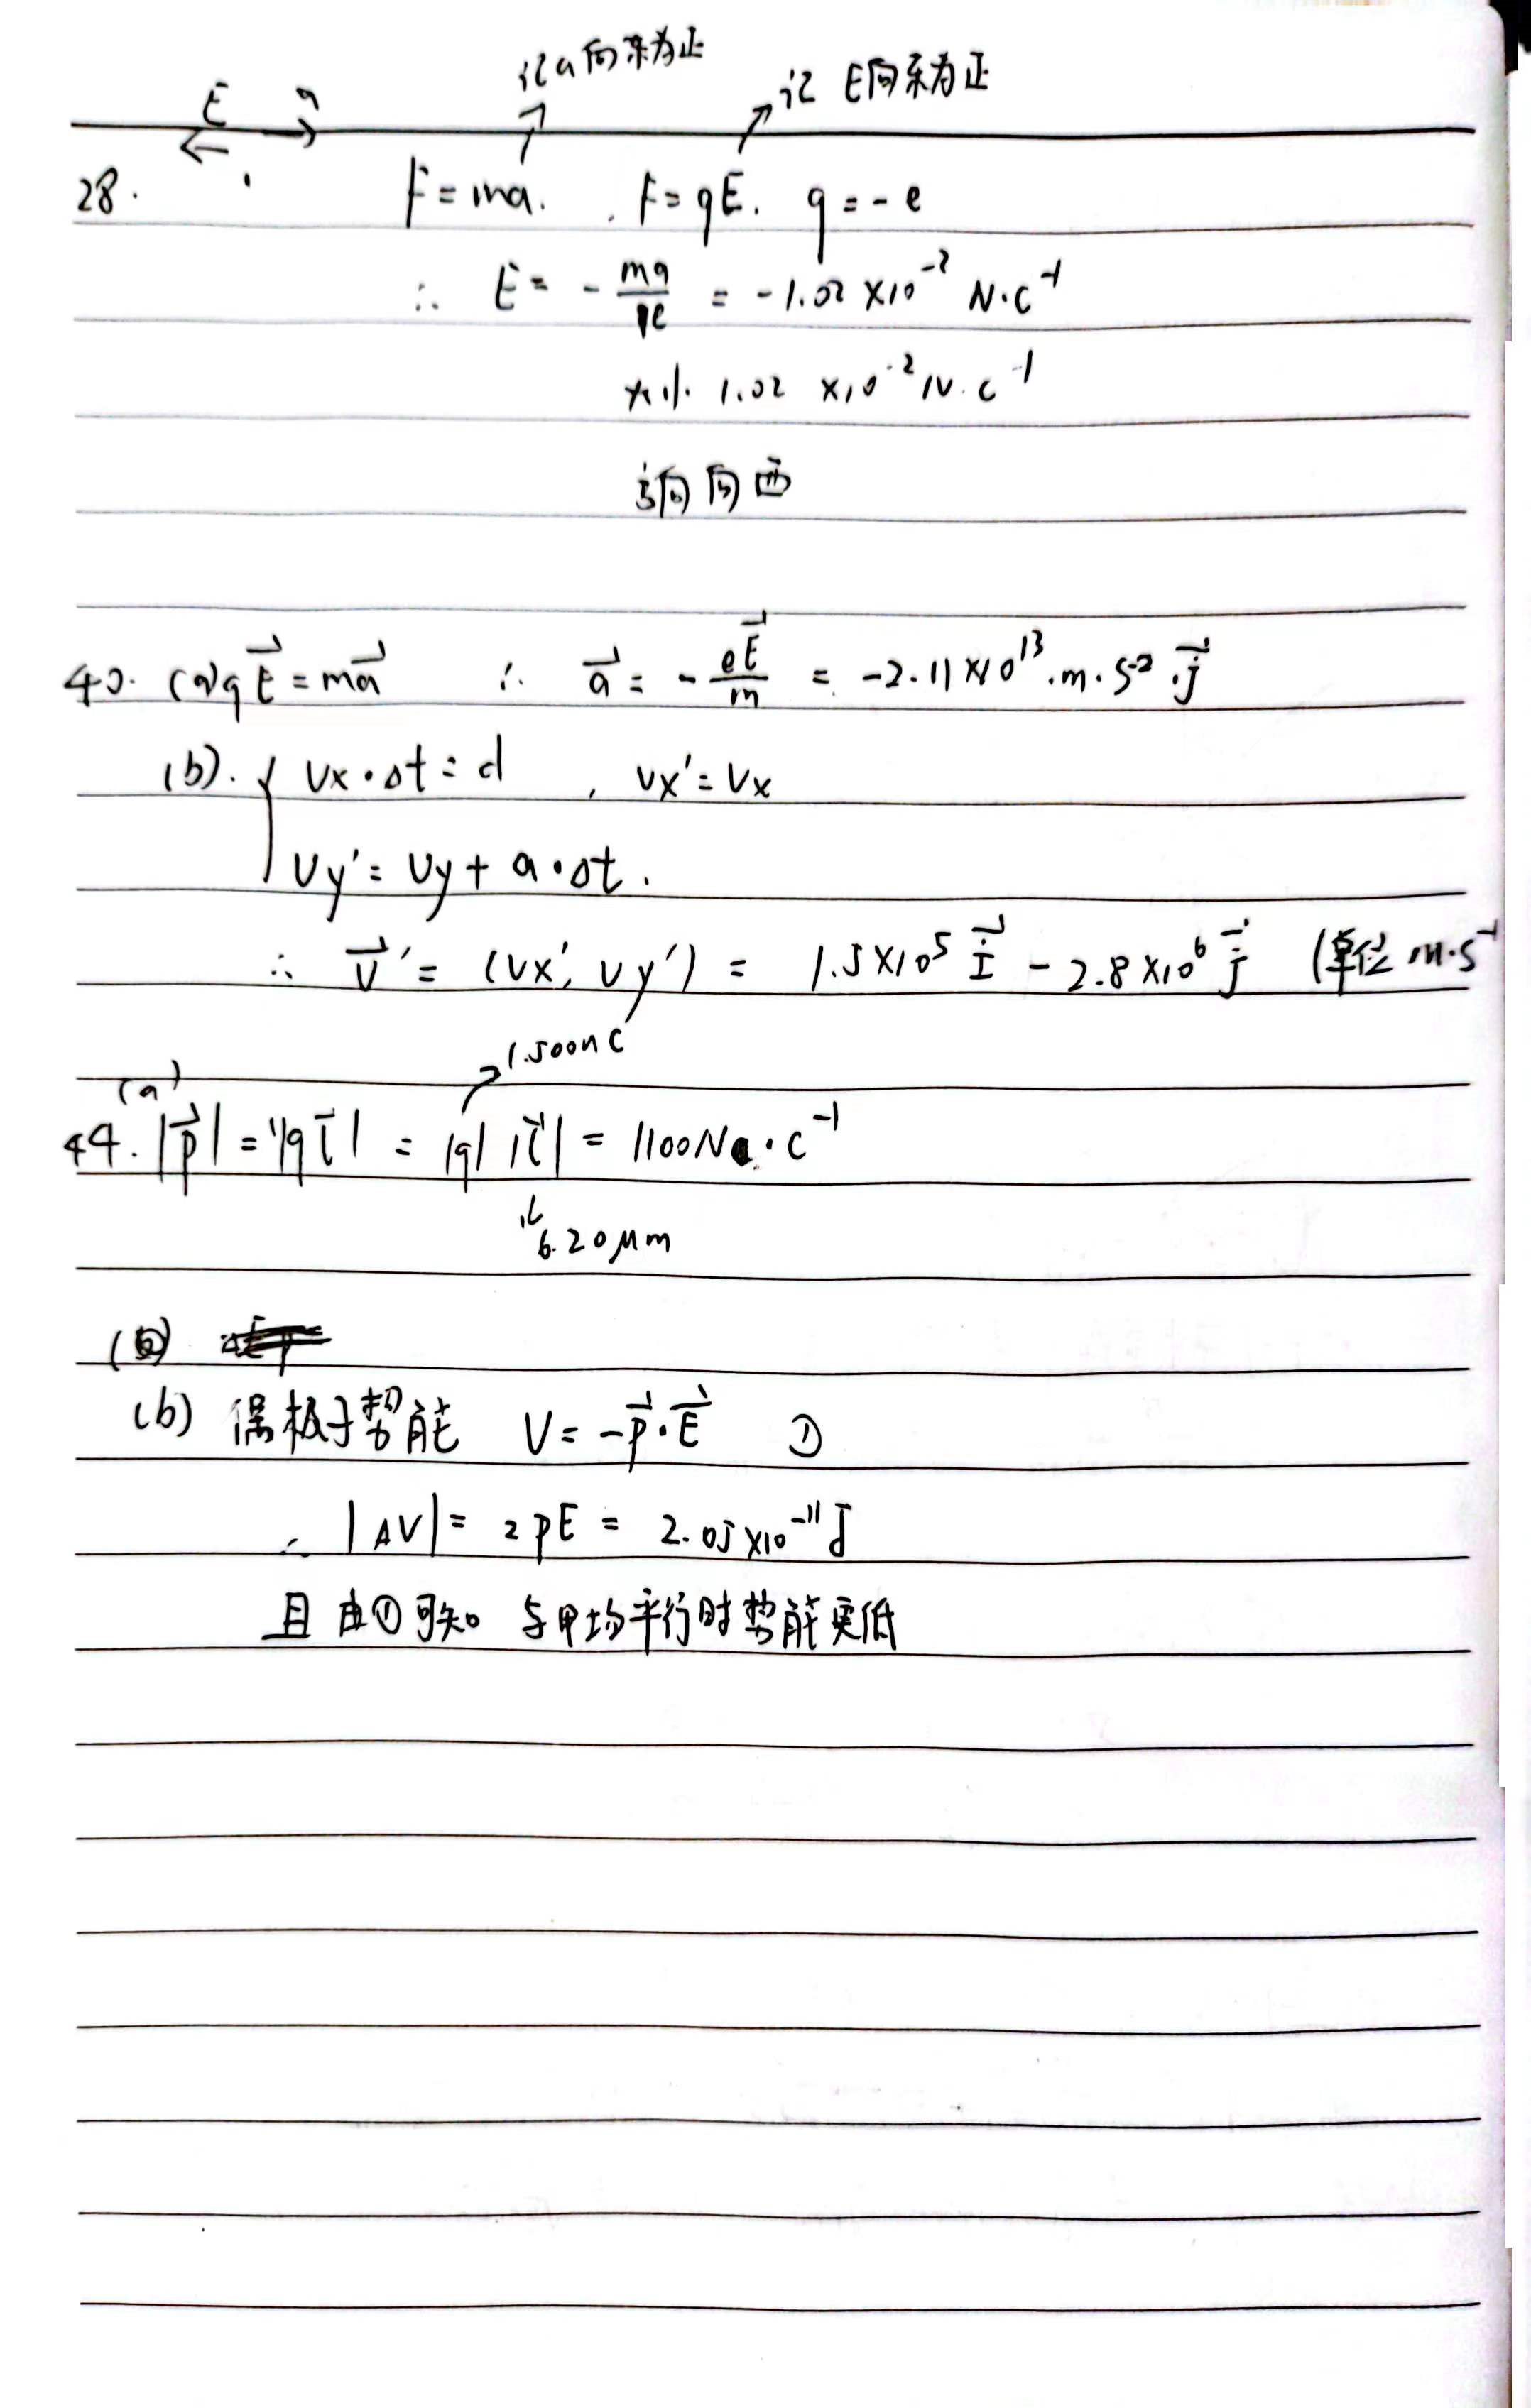 记a向东为正
记 E向东为正
E a
28. F=ma. F=qE. q=-e
∴ E= - ma/e = -1.02 ×10⁻² N·C⁻¹
大小 1.02 ×10⁻² N·C⁻¹
方向向西
40. (a) qE⃗ = ma⃗ ∴ a⃗ = - eE⃗/m = -2.11×10¹³·m·s⁻²·j⃗
(b). { Vx·Δt = d , Vx' = Vx
Vy' = Vy + a·Δt.
∴ V⃗' = (Vx', Vy') = 1.5×10⁵ i⃗ - 2.8×10⁶ j⃗ (单位 m·s⁻¹
1.500nC
(a)
44. |p⃗| = |q l⃗| = |q| |l⃗| = 1100N·C⁻¹
6.20μm
(b) 偶极子势能 V = -p⃗·E⃗ ①
∴ |ΔV| = 2pE = 2.05×10⁻¹¹J
且由①可知 与电场平行时势能更低